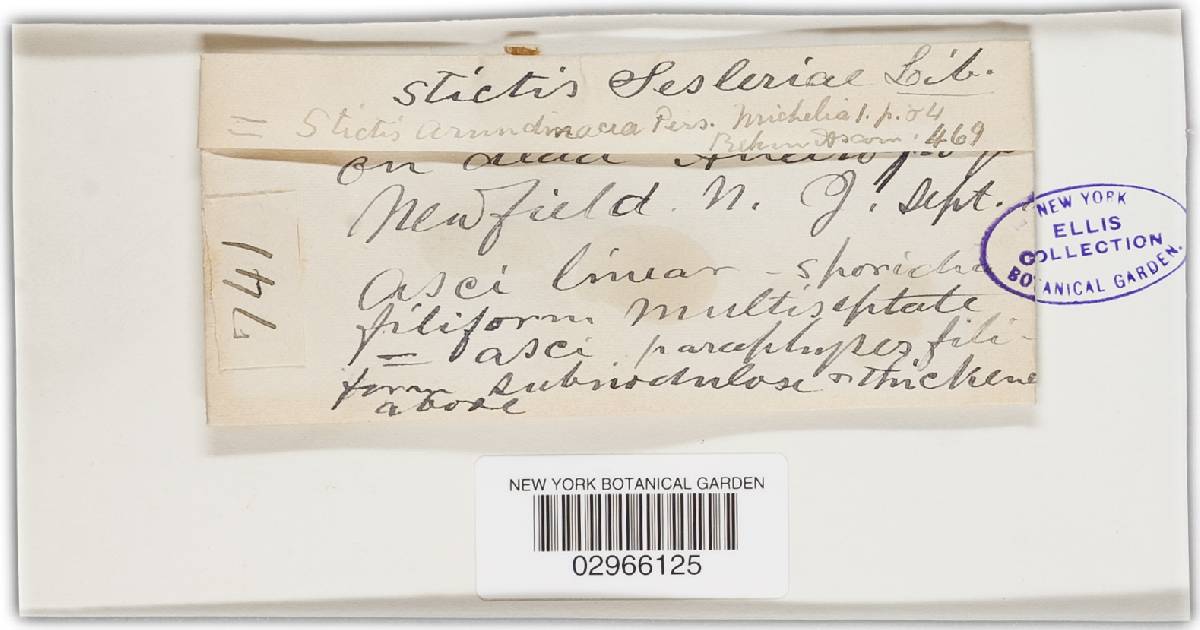 Stictis Sesleriae Lib.
= Stictis arundinacea Pers. Michelia 1. p. 84
Ascom. 469
on dead
Newfield. N. J. Sept.
741
Asci linear - sporidia
filiform multiseptate
= asci paraphyses fili-
form subnodulose or thickene
above
NEW YORK
ELLIS
COLLECTION
BOTANICAL GARDEN.
NEW YORK BOTANICAL GARDEN
02966125